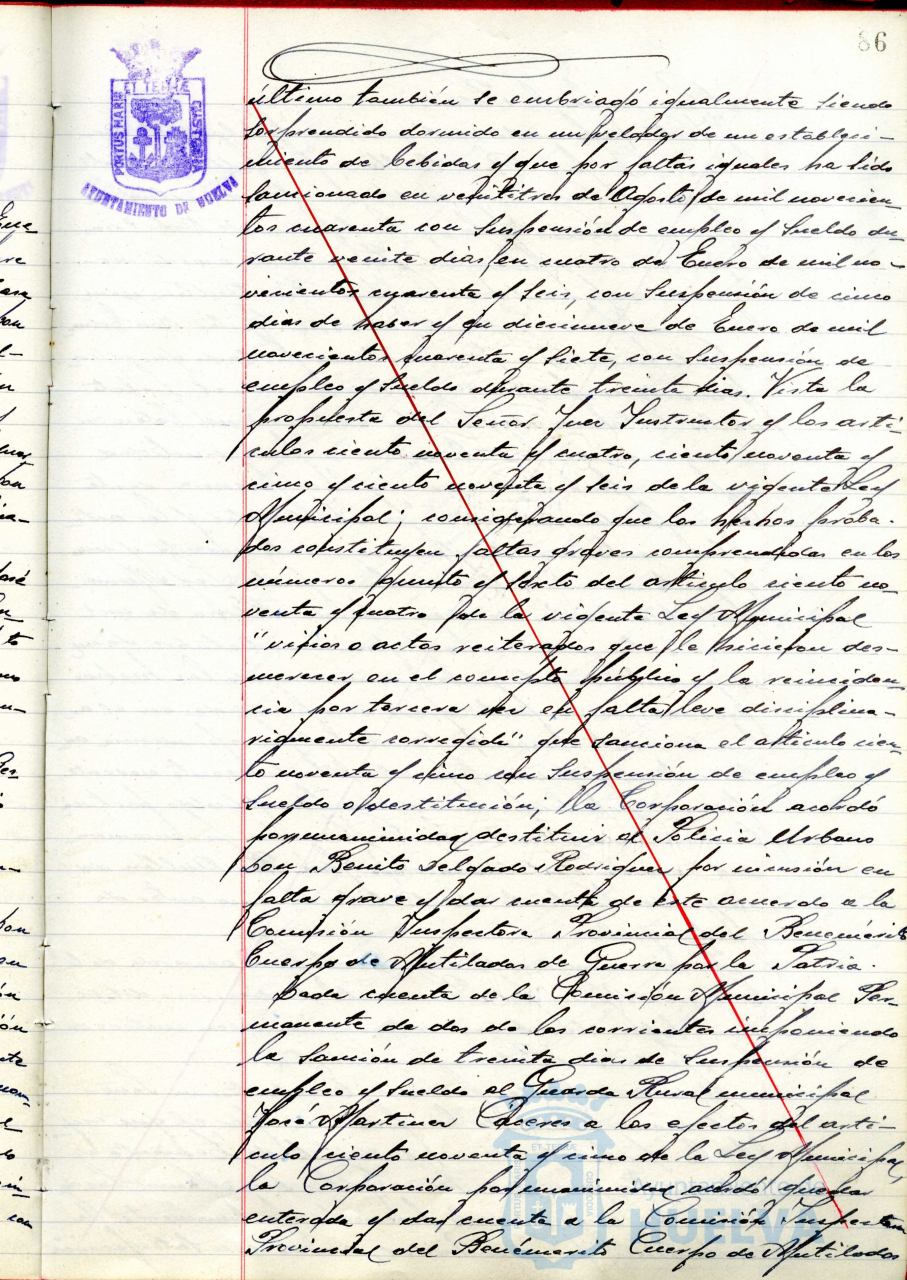 86
PORTUS MARIS ET TERRAE CUSTODIA
AYUNTAMIENTO DE HUELVA
último también se embriagó igualmente siendo
sorprendido dormido en un velador de un estableci-
miento de bebidas y que por faltas iguales ha sido
sancionado en veintitres de Agosto de mil novecien-
tos cuarenta con suspensión de empleo y sueldo du-
rante veinte dias, en cuatro de Enero de mil no-
vecientos cuarenta y seis, con suspensión de cinco
dias de haber y en diecinueve de Enero de mil
novecientos cuarenta y siete, con suspensión de
empleo y sueldo durante treinta dias. Vista la
propuesta del Señor Juez Instructor y los arti-
culos ciento noventa y cuatro, ciento noventa y
cinco y ciento noventa y seis de la vigente Ley
Municipal; considerando que los hechos proba-
dos constituyen faltas graves comprendidas en los
números quinto y sexto del articulo ciento no-
venta y cuatro de la vigente Ley Municipal
"vicios o actos reiterados que le hicieron des-
merecer en el concepto público y la reinciden-
cia por tercera vez en falta leve disciplina-
riamente corregida" que sanciona el articulo cien-
to noventa y cinco con suspensión de empleo y
sueldo o destitución; la Corporación acordó
por unanimidad destituir al Policia Urbano
Don Benito Delgado Rodriguez por incursión en
falta grave y dar cuenta de este acuerdo a la
Comisión Inspectora Provincial del Benemérito
Cuerpo de Mutilados de Guerra por la Patria.
Dada cuenta de la Comisión Municipal Per-
manente de dos de los corrientes imponiendo
la sanción de treinta dias de suspensión de
empleo y sueldo al Guarda Rural municipal
José Martinez Cáceres a los efectos del arti-
culo ciento noventa y cinco de la Ley Municipal,
la Corporación por unanimidad acordó quedar
enterada y dar cuenta a la Comisión Inspectora
Provincial del Benémerito Cuerpo de Mutilados
Ayuntamiento de
HUELVA